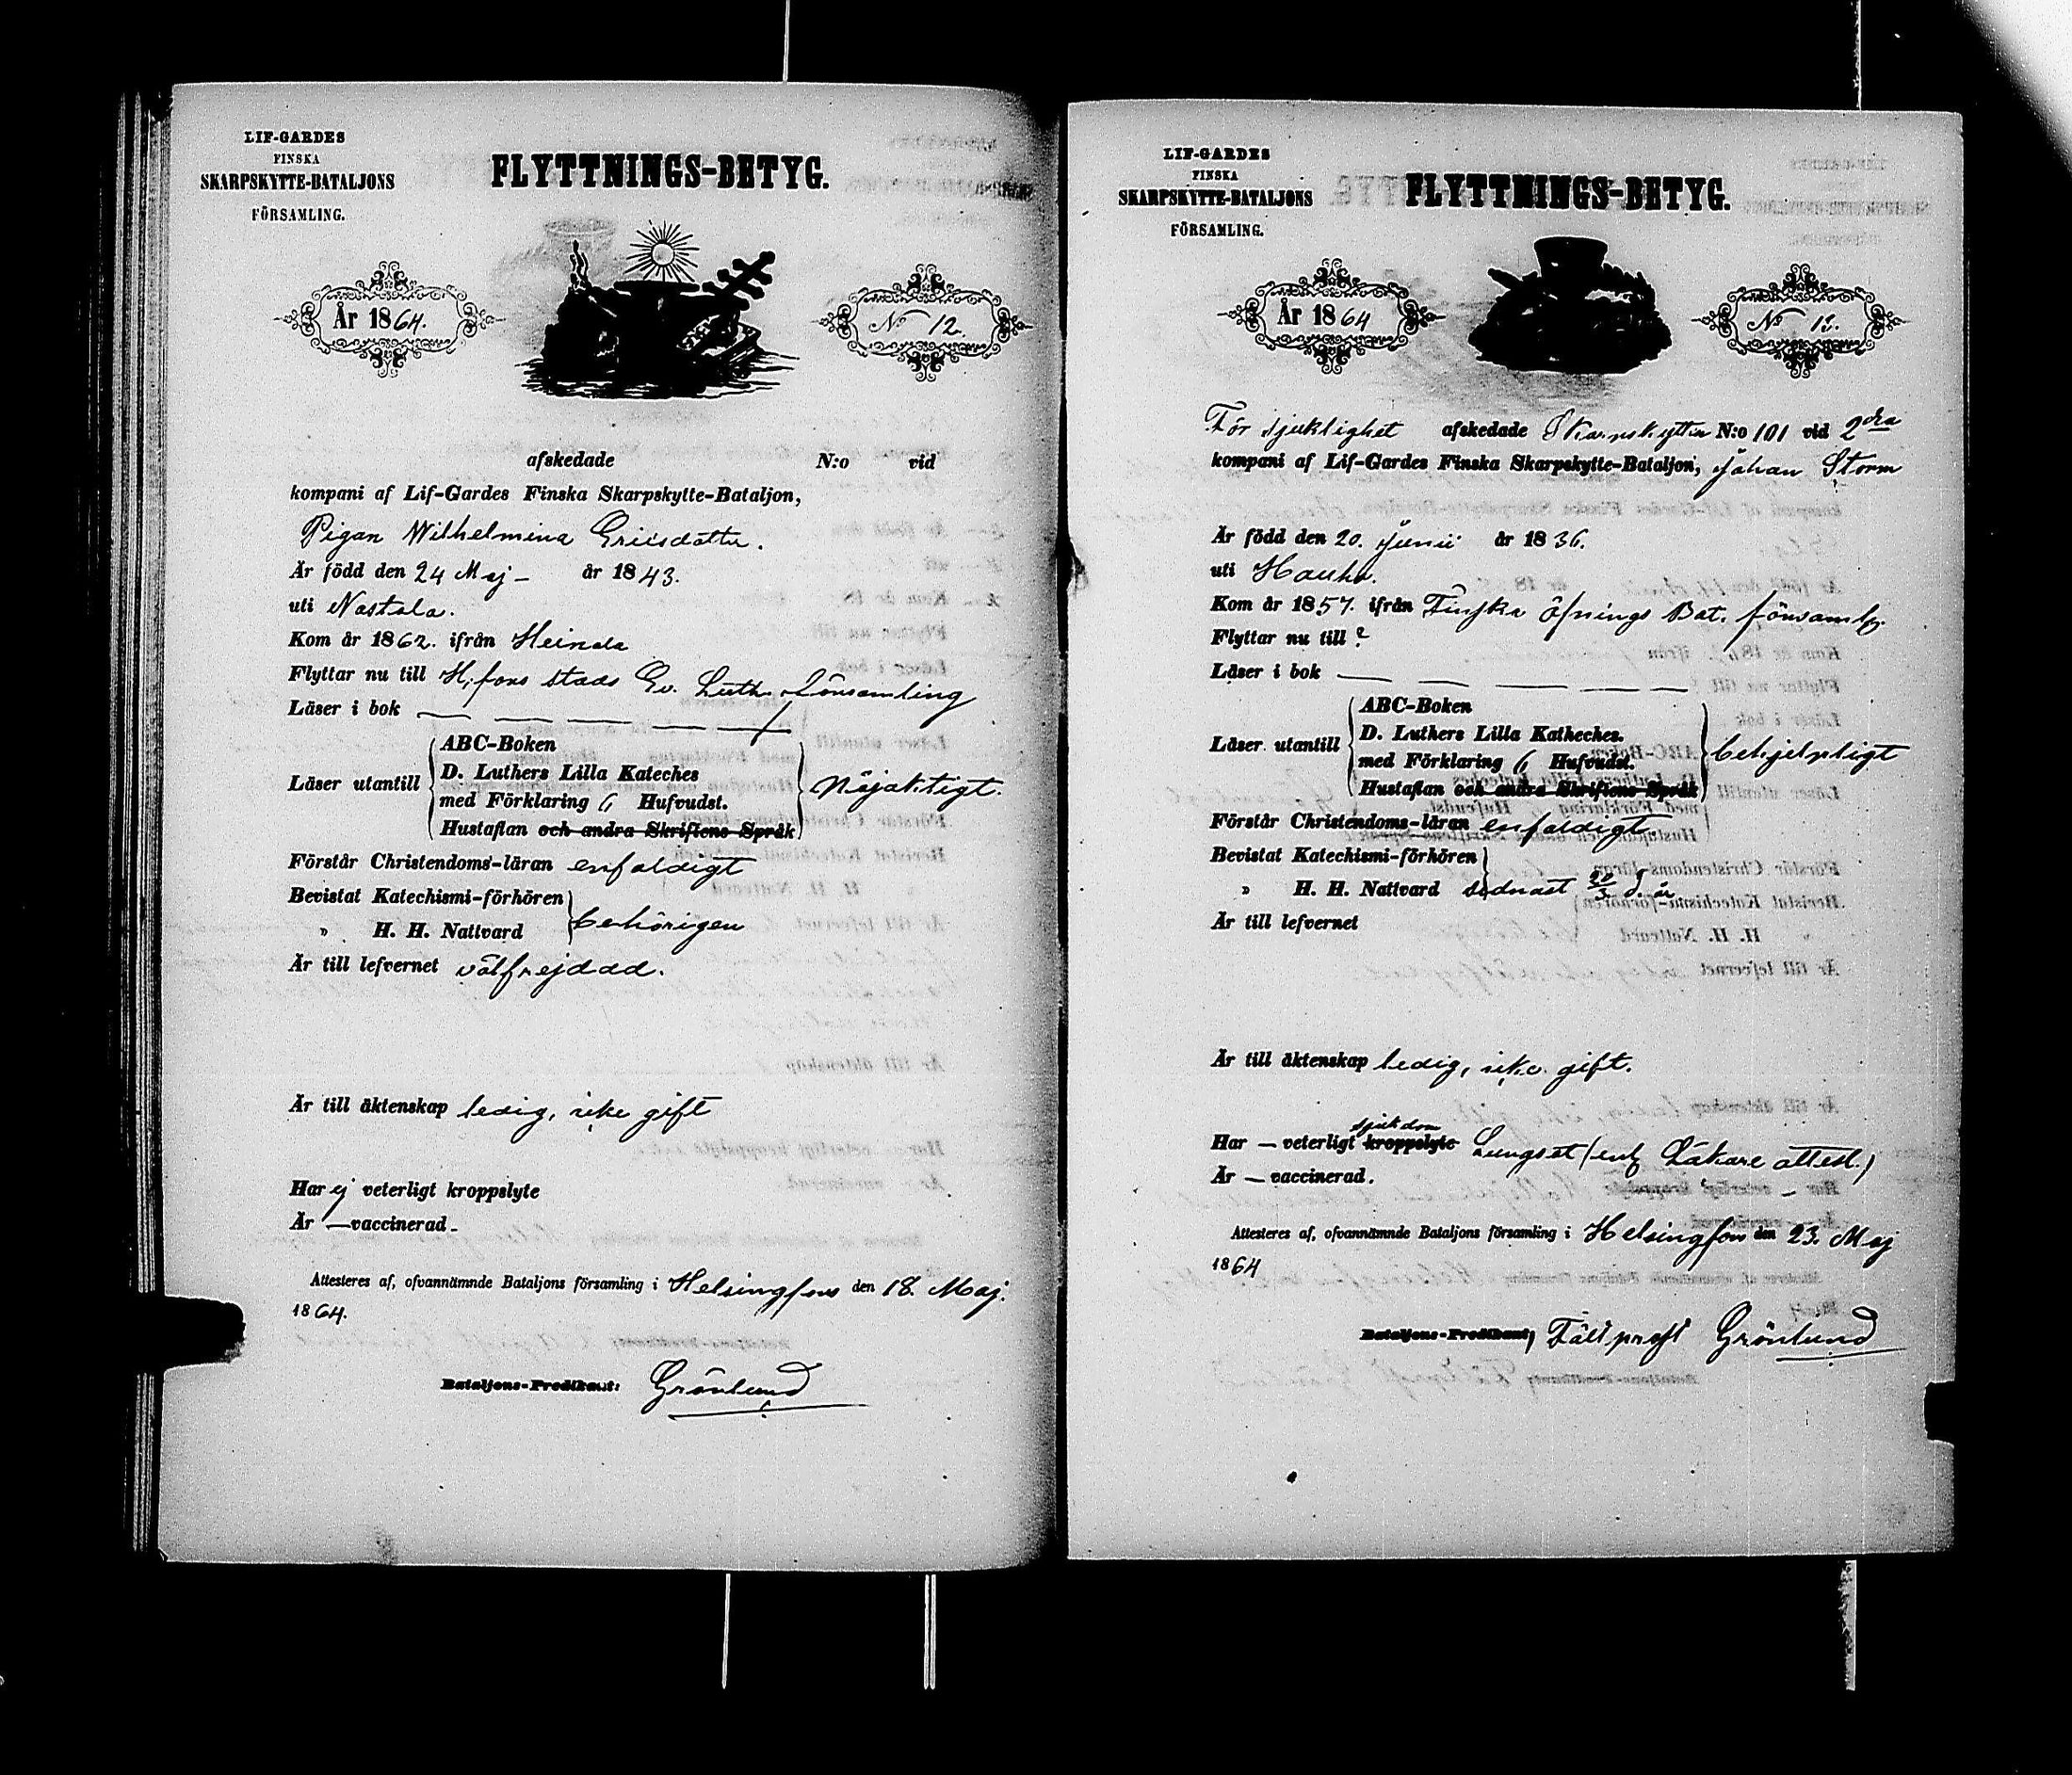 LIF-GARDES
FINSKA
SKARPSKYTTE-BATALJONS
FÖRSAMLING.
FLYTTNINGS-BETYG.
År 1864.
No 12.
afskedade N:o vid
kompani af Lif-Gardes Finska Skarpskytte-Bataljon,
Pigan Wilhelmina Ericsdotter.
Är född den 24 Maj - år 1843.
uti Nastola.
Kom år 1862. ifrån Heinola
Flyttar nu till H:fors stads Ev. Luth. församling
Läser i bok — — — — —
ABC-Boken
D. Luthers Lilla Kateches
Läser utantill med Förklaring 6 Hufvudst. Nöjaktigt.
Hustaflan och andra Skriftens Språk
Förstår Christendoms-läran enfaldigt
Bevistat Katechismi-förhören
" H. H. Nattvard behörigen
Är till lefvernet välfrejdad.
Är till äktenskap ledig, icke gift
Har ej veterligt kroppslyte
Är — vaccinerad.
Attesteres af, ofvannämnde Bataljons församling i Helsingfors den 18. Maj.
1864.
Bataljons-Predikant: Grönlund
LIF-GARDES
FINSKA
SKARPSKYTTE-BATALJONS
FÖRSAMLING.
FLYTTNINGS-BETYG.
År 1864
No 13.
För sjuklighet afskedade Skarpskytten N:o 101 vid 2dra
kompani af Lif-Gardes Finska Skarpskytte-Bataljon, Johan Storm
Är född den 20. Junii år 1836.
uti Hauho.
Kom år 1857. ifrån Finska Öfnings Bat. församlg.
Flyttar nu till ?
Läser i bok — — — — —
ABC-Boken
D. Luthers Lilla Katheches.
Läser utantill med Förklaring 6 Hufvudst. behjelpligt
Hustaflan och andra Skriftens Språk
Förstår Christendoms-läran enfaldigt.
Bevistat Katechismi-förhören
" H. H. Nattvard sednast 20/3 d. år
Är till lefvernet
Är till äktenskap ledig, icke gift.
sjukdom
Har — veterligt kroppslyte Lungsot (enl Läkare attest.)
Är — vaccinerad.
Attesteres af, ofvannämnde Bataljons församling i Helsingfors den 23. Maj
1864
Bataljons-Predikant, Fältprost Grönlund